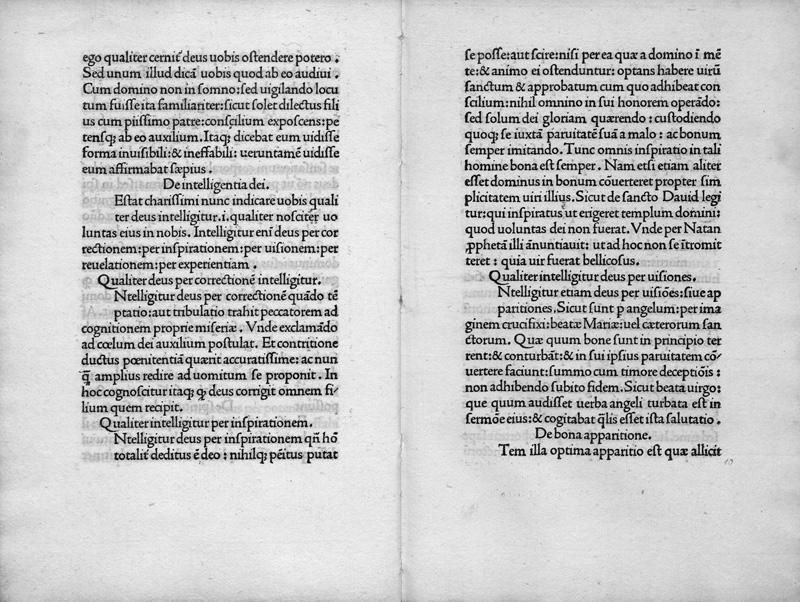 ego qualiter cernit᷑ deus uobis ostendere potero .
Sed unum illud dicā uobis quod ab eo audiui .
Cum domino non in somno: sed uigilando locu
tum fuisse ita familiariter: sicut solet dilectus fili
us cum piissimo patre: conscilium exposcens: pe
tensq; ab eo auxilium. Itaq; dicebat eum uidisse
forma inuisibili: & ineffabili: ueruntamē uidisse
eum affirmabat sæpius .
De intelligentia dei.
Estat charissimi nunc indicare uobis quali
ter deus intelligitur .i. qualiter noscitᷣer uo
luntas eius in nobis. Intelligitur enī deus per cor
rectionem: per inspirationem: per uisionem: per
reuelationem: per experientiam .
Qualiter deus per correctionē intelligitur.
Ntelligitur deus per correctionē quādo tē
ptatio: aut tribulatio trahit peccatorem ad
cognitionem proprie miseriæ . Vnde exclamādo
ad cœlum dei auxilium postulat. Et contritione
ductus pœnitentiā quærit accuratissime: ac nun
q̄ amplius redire ad uomitum se proponit . In
hoc cognoscitur itaq; ꝙ deus corrigit omnem fi/
lium quem recipit.
Qualiter intelligitur per inspirationem.
Ntelligitur deus per inspirationem qñ hō
totalit᷑ deditus ē deo : nihilq; pēitus putat
se posse: aut scire: nisi per ea quæ a domino ī mē
te: & animo ei ostenduntur: optans habere uirū
sanctum & approbatum cum quo adhibeat con
scilium: nihil omnino in sui honorem operādo:
sed solum dei gloriam quærendo : custodiendo
quoq; se iuxta paruitatē suā a malo : ac bonum
semper imitando. Tunc omnis inspiratio in tali
homine bona est semper . Nam etsi etiam aliter
esset dominus in bonum cōuerteret propter sim
plicitatem uiri illius. Sicut de sancto Dauid legi
tur: qui inspiratus ut erigeret templum domini:
quod uoluntas dei non fuerat. Vnde per Natan
ꝓphetā illi ānuntiauit: ut ad hoc non se ītromit
teret : quia uir fuerat bellicosus.
Qualiter intelligitur deus per uisiones.
Ntelligitur etiam deus per uisiōes: siue ap
paritiones. Sicut sunt p angelum: per ima
ginem crucifixi: beatæ Mariæ: uel cæterorum san
ctorum. Quæ quum bone sunt in principio ter
rent: & conturbāt: & in sui ipsius paruitatem cō/
uertere faciunt: summo cum timore deceptiōis :
non adhibendo subito fidem. Sicut beata uirgo:
que quum audisset uerba angeli turbata est in
sermōe eius: & cogitabat q̄lis esset ista salutatio .
De bona apparitione.
Tem illa optima apparitio est quæ allicit